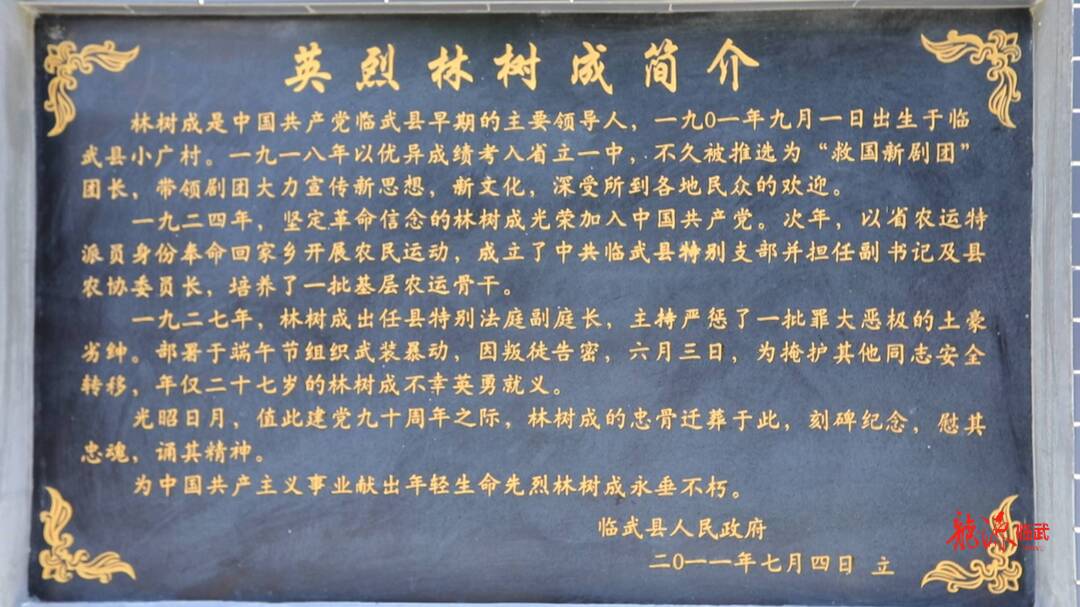 英烈林树成简介
林树成是中国共产党临武县早期的主要领导人，一九0一年九月一日出生于临
武县小广村。一九一八年以优异成绩考入省立一中，不久被推选为“救国新剧团”
团长，带领剧团大力宣传新思想，新文化，深受所到各地民众的欢迎。
一九二四年，坚定革命信念的林树成光荣加入中国共产党。次年，以省农运特
派员身份奉命回家乡开展农民运动，成立了中共临武县特别支部并担任副书记及县
农协委员长，培养了一批基层农运骨干。
一九二七年，林树成出任县特别法庭副庭长，主持严惩了一批罪大恶极的土豪
劣绅。部署于端午节组织武装暴动，因叛徒告密，六月三日，为掩护其他同志安全
转移，年仅二十七岁的林树成不幸英勇就义。
光昭日月，值此建党九十周年之际，林树成的忠骨迁葬于此，刻碑纪念，慰其
忠魂，诵其精神。
为中国共产主义事业献出年轻生命先烈林树成永垂不朽。
临武县人民政府
二0一一年七月四日 立
临武